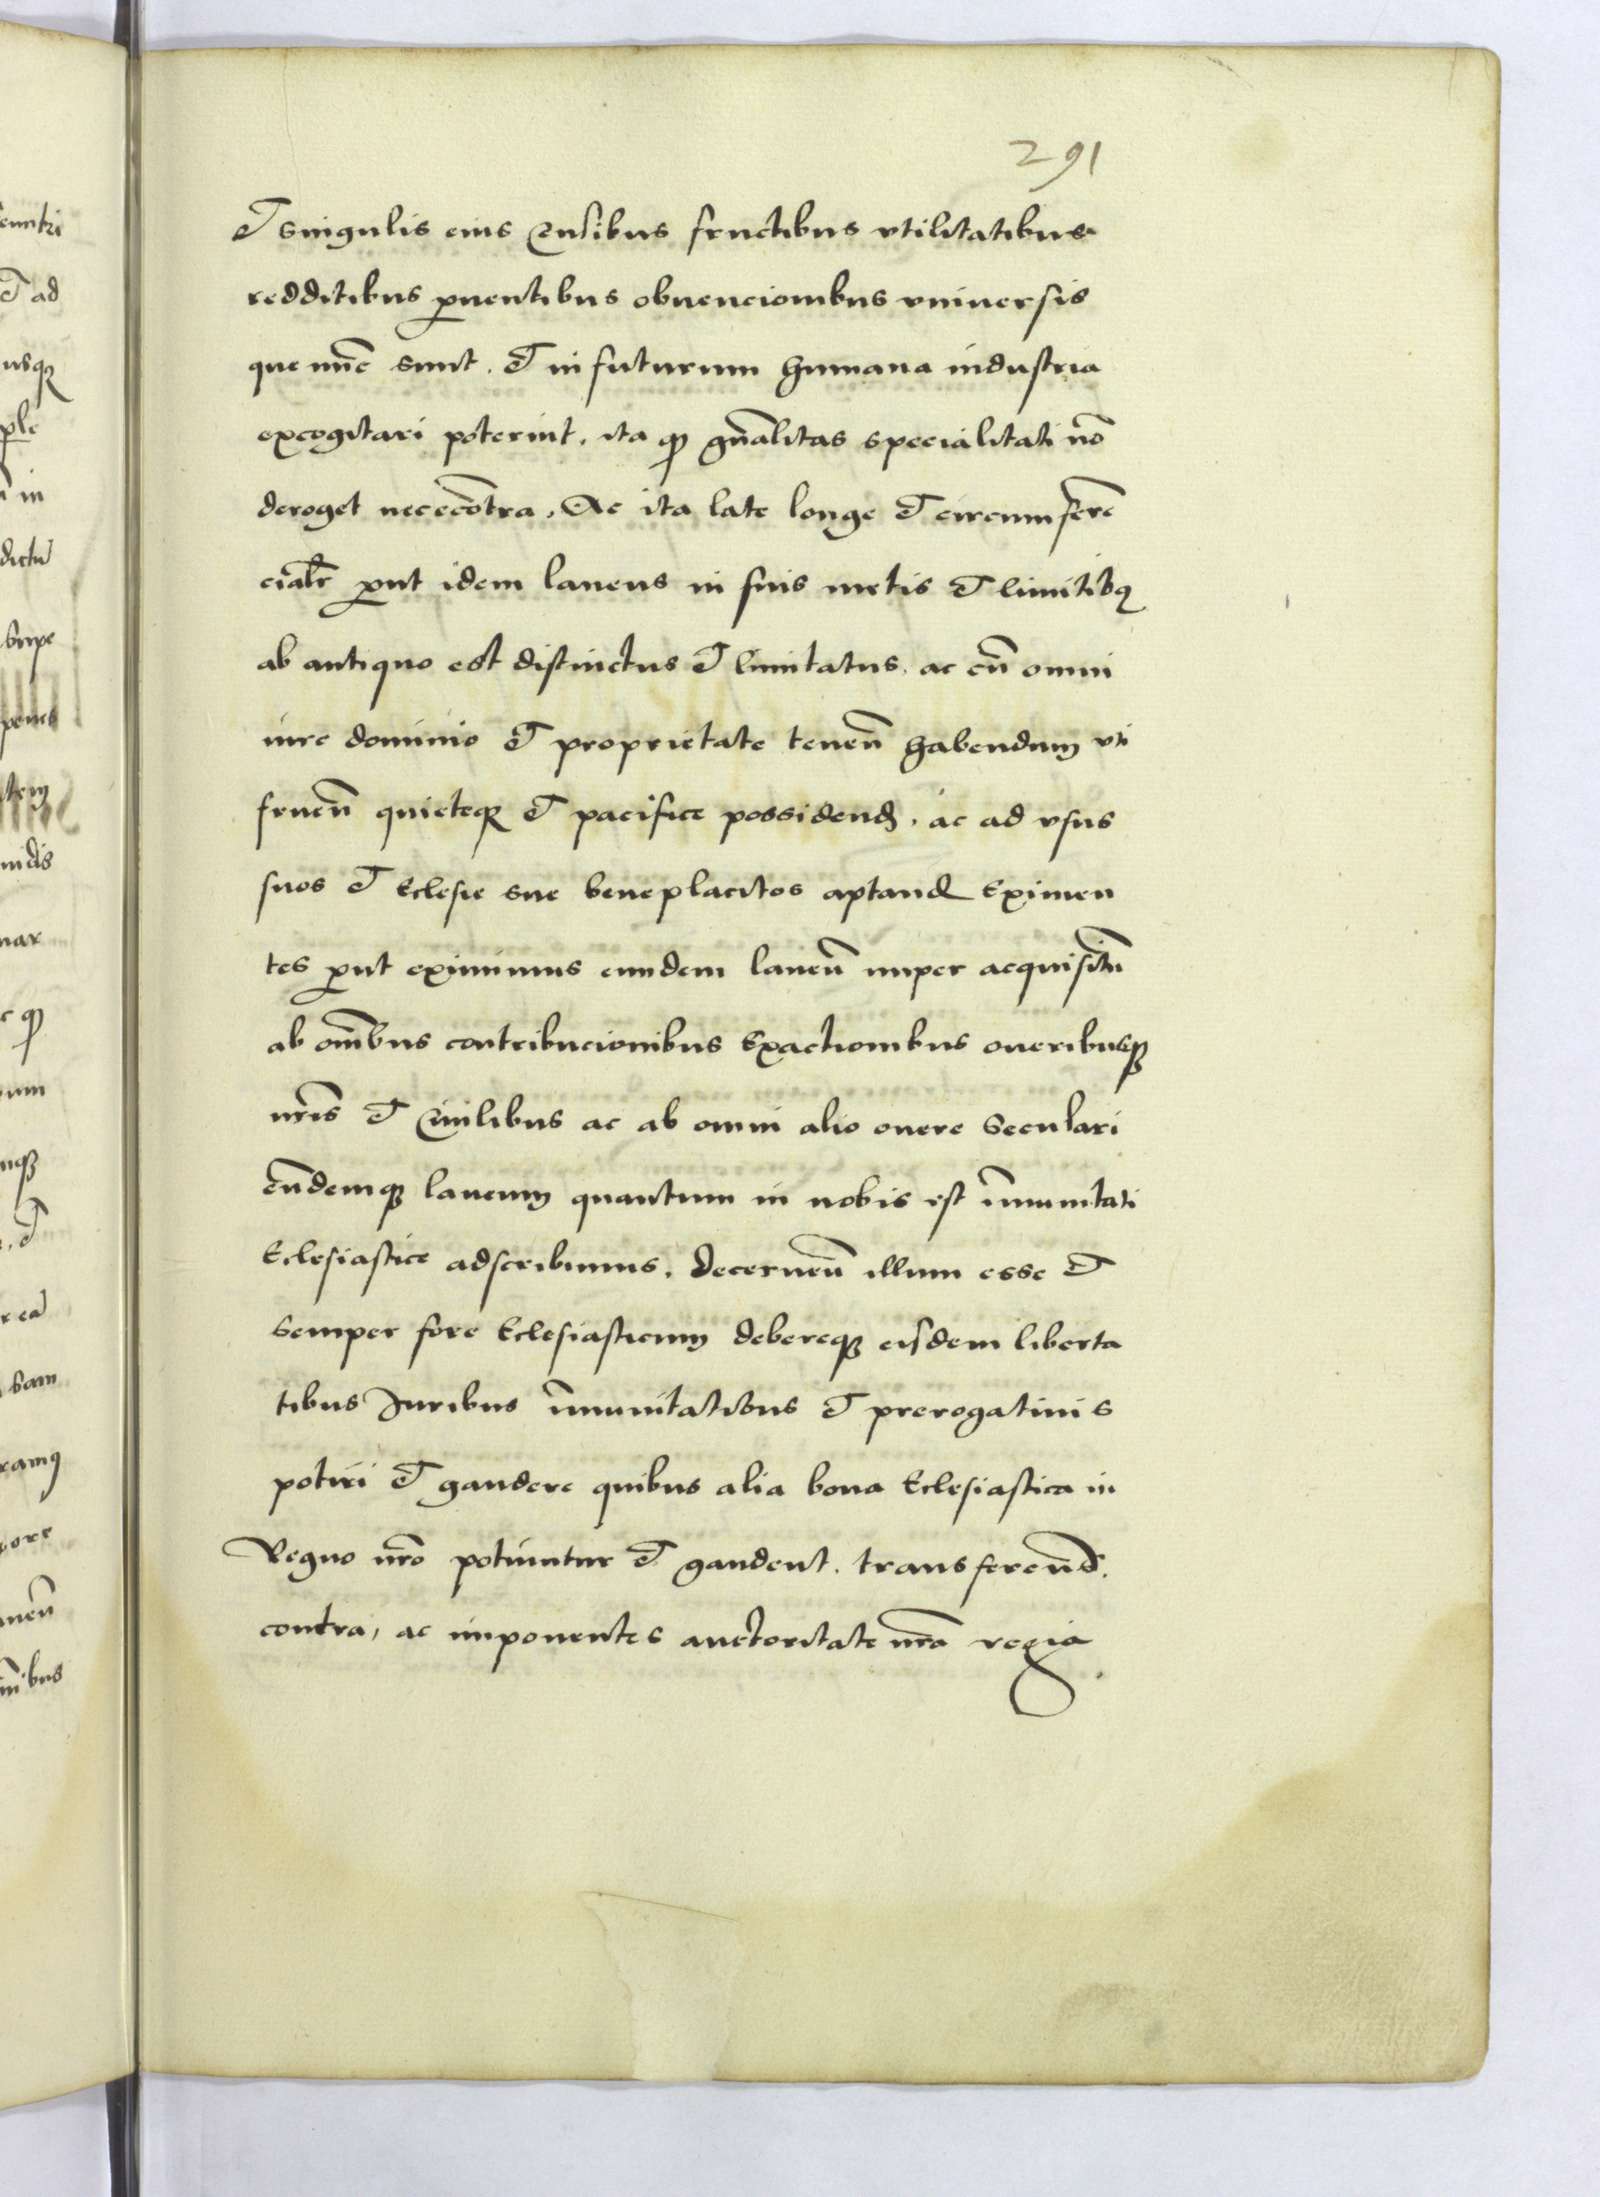 291
et singulis eius Censibus fructibus vtilitatibus
redditibus ꝓuentibus obuencionibus vniuersis
que nūc sunt. et in futurum humana industria
excogitari poterint, ita ꝙ gn̄alitas specialitati nō
deroget nec ecōtra, Ac ita late longe et circumferē
cialr̄ ꝓut idem laneus in suis metis et limitibꝯ
ab antiquo est distinctus et limitatus, ac cū omni
iure dominio et proprietate tenen̄ habendum vti
fruen̄ quieteqꝫ et pacifice possidenđ, ac ad vsus
suos et Eclesie sue beneplacitos aptanđ Eximen
tes ꝓut eximimus eundem laneū nuper acquisitū
ab om̄ibus contribucionibus Exactionibus oneribusqꝫ
nr̄is et Ciuilibus ac ab omni alio onere Seculari
eūdemqꝫ laneum quantum in nobis est īmunitati
Eclesiastice adscribimus, Decernen̄ illum esse et
Semper fore Eclesiasticum debereqꝫ eisdem liberta
tibus Juribus īmunitatibus et prerogatiuis
potiri et gaudere quibus alia bona Eclesiastica in
Regno nr̄o potiuntur et gaudent. transferen̄đ.
contra, ac imponentes auctoritate nr̄a regia